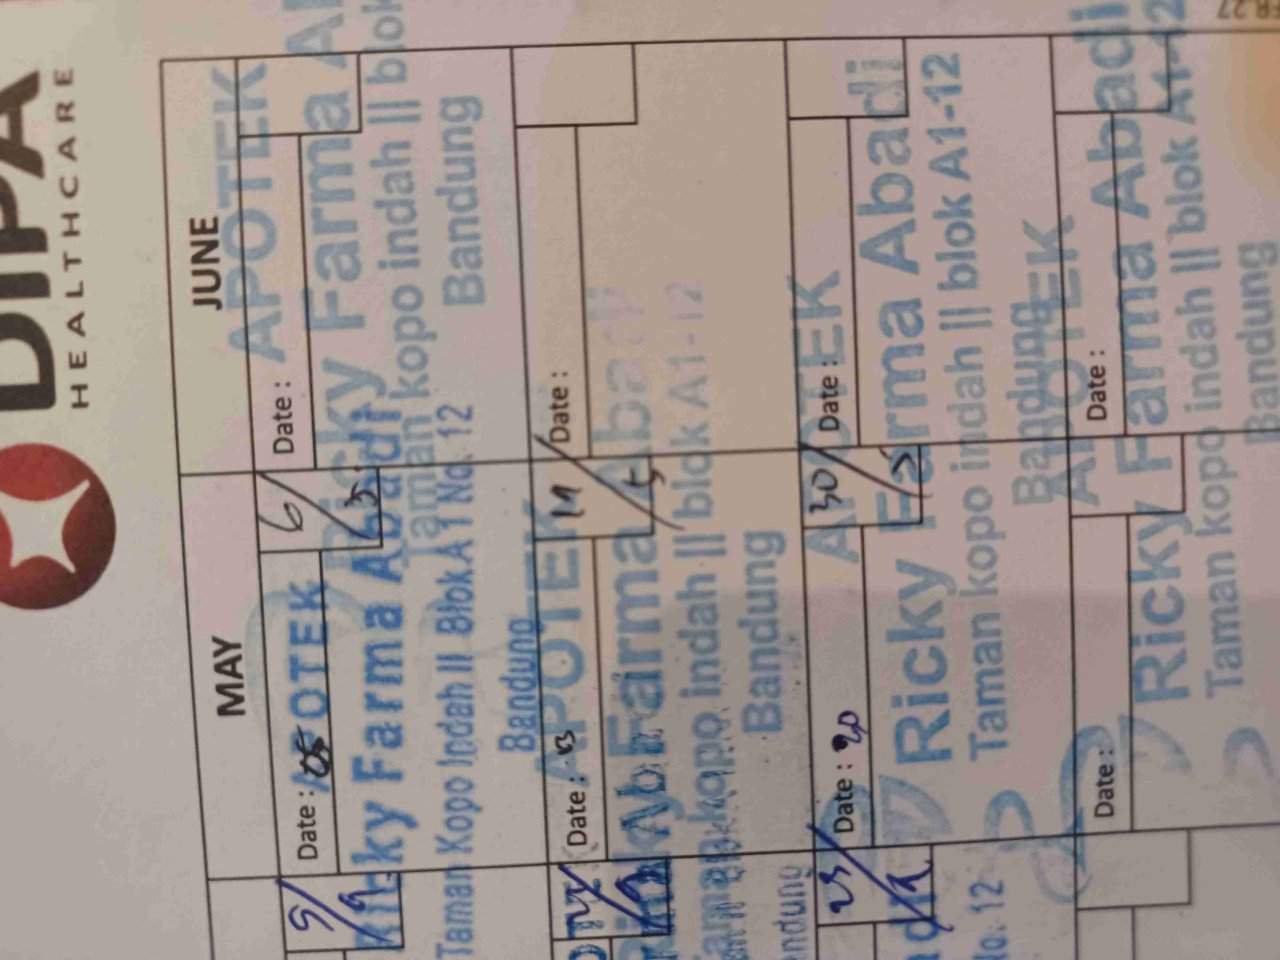 DIPA
HEALTHCARE
MAY
JUNE
9/4
Date : 05
6/5
Date :
APOTEK
Ricky Farma Abadi
Taman Kopo Indah II Blok A1 No. 12
Bandung
APOTEK
Ricky Farma A
Taman kopo indah || blok
Bandung
Date : 13
19/5
Date :
APOTEK
Ricky Farma Abadi
Taman kopo indah || blok A1-12
Bandung
23/4
Date : 20
30/5
Date :
APOTEK
Ricky Farma Abadi
Taman kopo indah || blok A1-12
Bandung
No. 12
Date :
Date :
APOTEK
Ricky Farma Abadi
Taman kopo indah || blok A1-12
Bandung